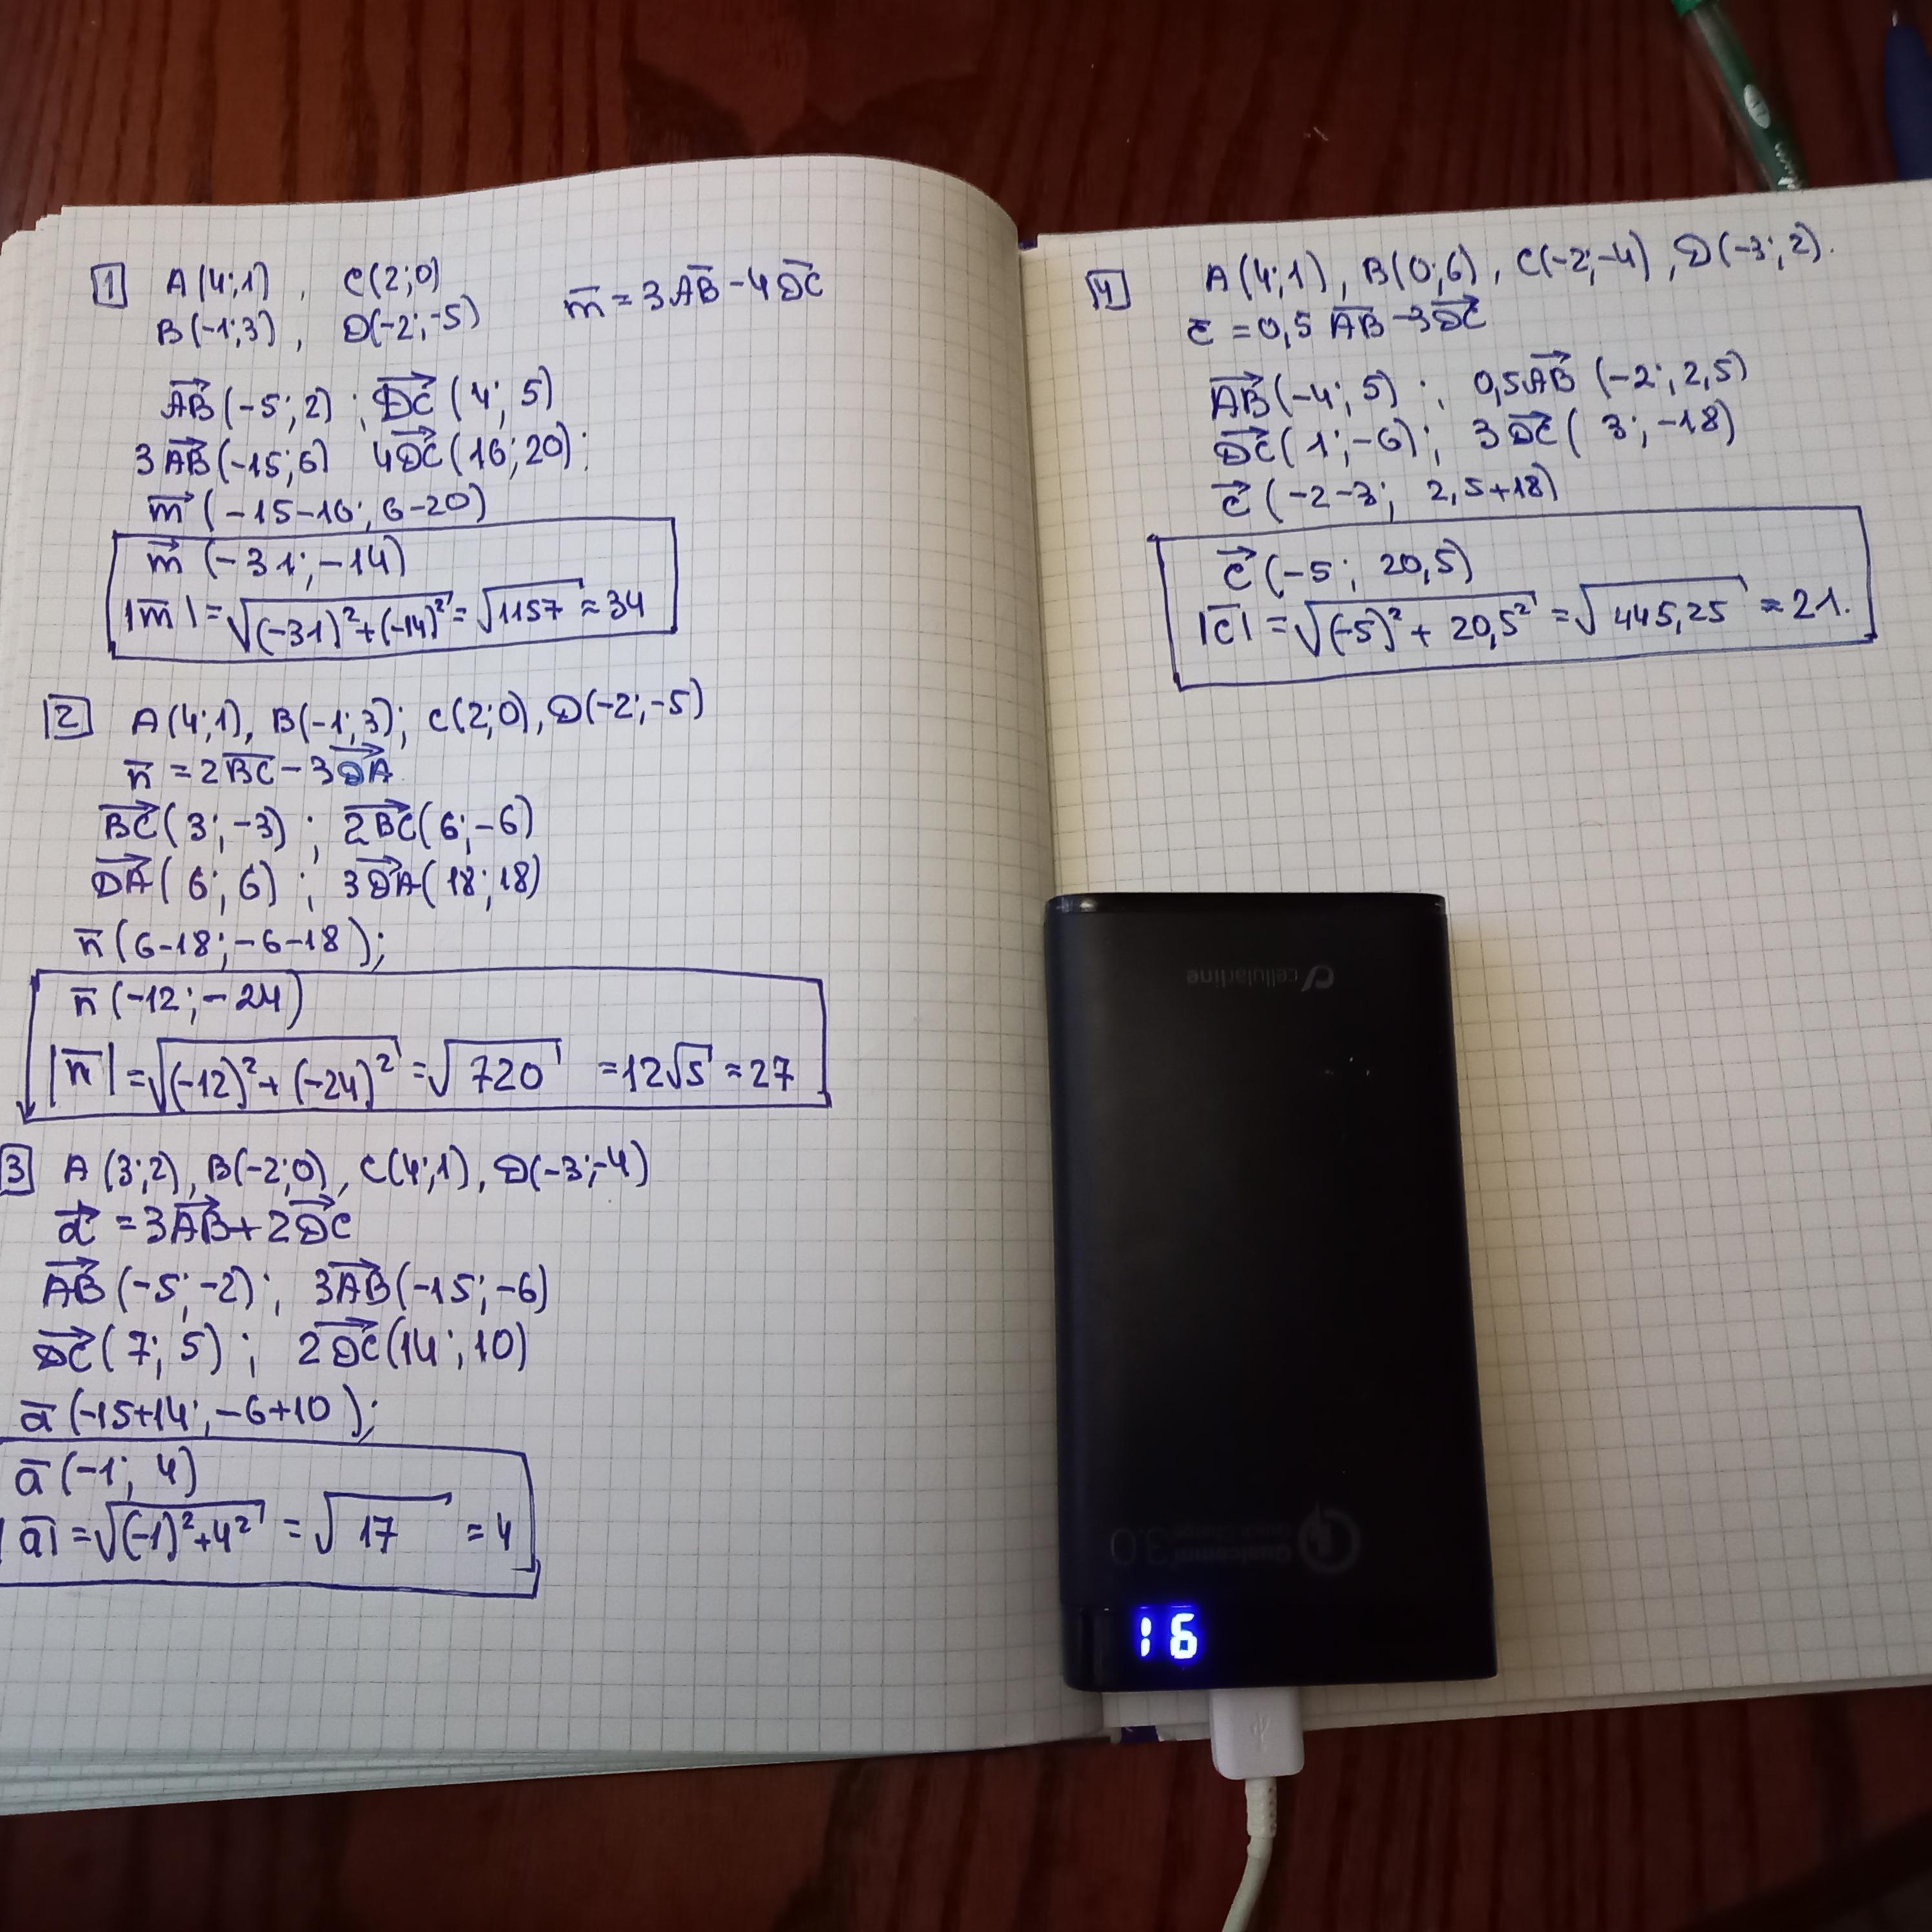 1 A(4;1), C(2;0)
B(-1;3), D(-2;-5) m̅ = 3AB̅ - 4DC̅
AB⃗(-5;2); DC⃗(4;5)
3AB⃗(-15;6) 4DC⃗(16;20);
m⃗(-15-16; 6-20)
m⃗(-31;-14)
|m̅| = √((-31)²+(-14)²) = √1157 ≈ 34
2 A(4;1), B(-1;3); C(2;0), D(-2;-5)
n̅ = 2BC̅ - 3DA⃗
BC⃗(3;-3); 2BC⃗(6;-6)
DA⃗(6;6); 3DA⃗(18;18)
n̅(6-18;-6-18);
n̅(-12;-24)
|n̅| = √((-12)²+(-24)²) = √720 = 12√5 ≈ 27
3 A(3;2), B(-2;0), C(4;1), D(-3;-4)
a⃗ = 3AB⃗ + 2DC⃗
AB⃗(-5;-2); 3AB⃗(-15;-6)
DC⃗(7;5); 2DC⃗(14;10)
a̅(-15+14;-6+10);
a̅(-1;4)
|a̅| = √((-1)²+4²) = √17 = 4
4 A(4;1), B(0;6), C(-2;-4), D(-3;2).
c̅ = 0,5AB̅ - 3DC⃗
AB⃗(-4;5); 0,5AB⃗(-2;2,5)
DC⃗(1;-6); 3DC⃗(3;-18)
c⃗(-2-3; 2,5+18)
c⃗(-5; 20,5)
|c̅| = √((-5)²+20,5²) = √445,25 ≈ 21.
cellularline
Qualcomm
3.0
16